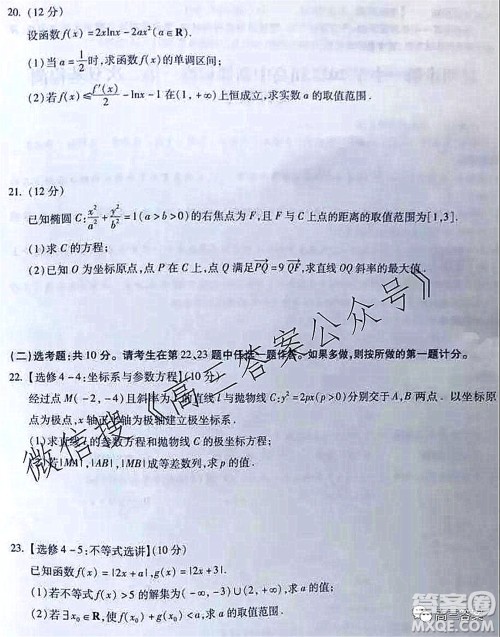 20. (12分)
设函数f(x)=2xlnx-2ax²(a∈R).
(1)当a=1/2时,求函数f(x)的单调区间;
(2)若f(x)≤f′(x)/2-lnx-1在(1,+∞)上恒成立,求实数a的取值范围.
21. (12分)
已知椭圆C:x²/a²+y²/b²=1(a>b>0)的右焦点为F,且F与C上点的距离的取值范围为[1,3].
(1)求C的方程;
(2)已知O为坐标原点,点P在C上,点Q满足PQ=9QF,求直线OQ斜率的最大值.
(二)选考题:共10分。请考生在第22、23题中任选一题作答。如果多做,则按所做的第一题计分。
22.【选修4-4:坐标系与参数方程】(10分)
经过点M(-2,-4)且斜率为的直线l与抛物线C:y²=2px(p>0)分别交于A,B两点.以坐标原
点为极点,x轴正半轴为极轴建立极坐标系.
(1)求直线l的参数方程和抛物线C的极坐标方程;
(2)若|MA|,|AB|,|MB|成等差数列,求p的值.
23.【选修4-5:不等式选讲】(10分)
已知函数f(x)=|2x+a|,g(x)=|2x+3|.
(1)若不等式f(x)>5的解集为(-∞,-3)∪(2,+∞),求a;
(2)若∃x₀∈R,使f(x₀)+g(x₀)<a,求a的取值范围.
微信搜《高三答案公众号》
答案圈
高三答案